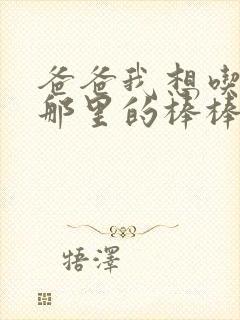 爸爸我想喫
那里的棒棒
牾澤